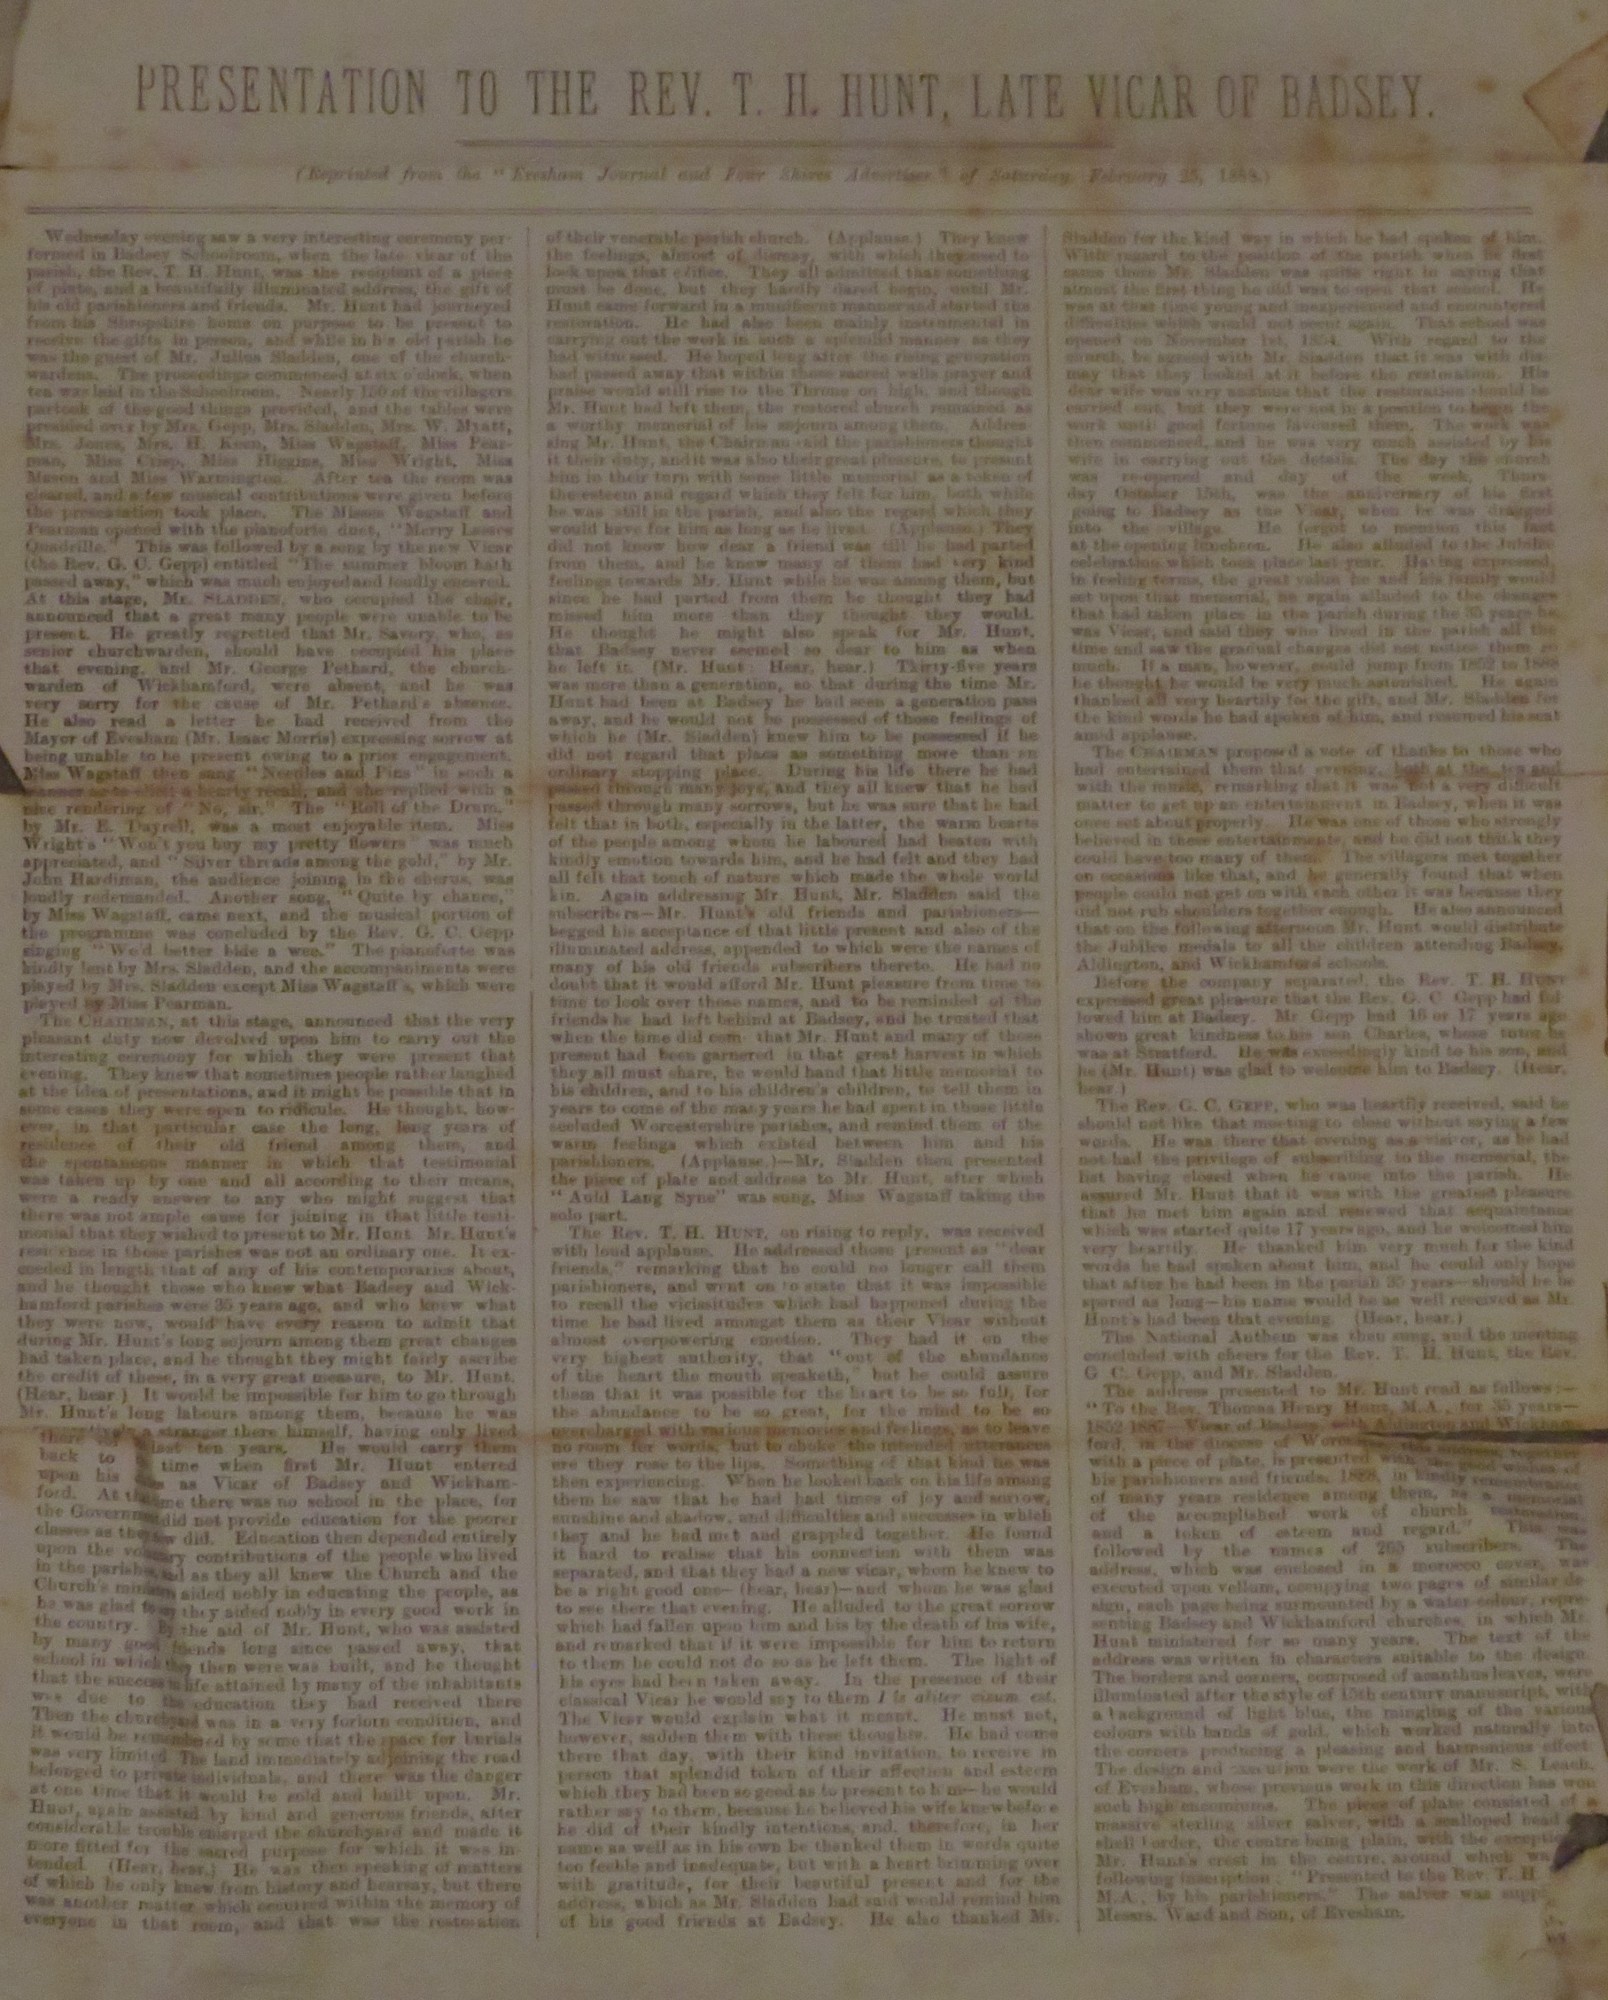 PRESENTATION TO THE REV. T. H. HUNT, LATE VICAR OF BADSEY.
(Reprinted from the "Evesham Journal and Four Shires Advertiser" of Saturday, February 25, 1888.)
Wednesday evening saw a very interesting ceremony per-
formed in Badsey Schoolroom, when the late vicar of the
parish, the Rev. T. H. Hunt, was the recipient of a piece
of plate, and a beautifully illuminated address, the gift of
his old parishioners and friends. Mr. Hunt had journeyed
from his Shropshire home on purpose to be present to
receive the gifts in person, and while in his old parish he
was the guest of Mr. Julius Sladden, one of the church-
wardens. The proceedings commenced at six o'clock, when
tea was laid in the Schoolroom. Nearly 150 of the villagers
partook of the good things provided, and the tables were
presided over by Mrs. Gepp, Mrs. Sladden, Mrs. W. Myatt,
Mrs. Jones, Mrs. H. Keen, Miss Wagstaff, Miss Pear-
man, Miss Crisp, Miss Higgins, Miss Wright, Miss
Mason and Miss Warmington. After tea the room was
cleared, and a few musical contributions were given before
the presentation took place. The Misses Wagstaff and
Pearman opened with the pianoforte duet, "Merry Lasses
Quadrille." This was followed by a song by the new Vicar
(the Rev. G. C. Gepp) entitled "The summer bloom hath
passed away," which was much enjoyed and loudly encored.
At this stage, Mr. SLADDEN, who occupied the chair,
announced that a great many people were unable to be
present. He greatly regretted that Mr. Savory, who, as
senior churchwarden, should have occupied his place
that evening, and Mr. George Pethard, the church-
warden of Wickhamford, were absent, and he was
very sorry for the cause of Mr. Pethard's absence.
He also read a letter he had received from the
Mayor of Evesham (Mr. Isaac Morris) expressing sorrow at
being unable to be present owing to a prior engagement.
Miss Wagstaff then sang "Needles and Pins" in such a
manner as to elicit a hearty recall, and she replied with a
nice rendering of "No, sir." The "Roll of the Drum,"
by Mr. E. Dayrell, was a most enjoyable item. Miss
Wright's "Won't you buy my pretty flowers" was much
appreciated, and "Silver threads among the gold," by Mr.
John Hardiman, the audience joining in the chorus, was
loudly redemanded. Another song, "Quite by chance,"
by Miss Wagstaff, came next, and the musical portion of
the programme was concluded by the Rev. G. C. Gepp
singing "We'd better bide a wee." The pianoforte was
kindly lent by Mrs. Sladden, and the accompaniments were
played by Mrs. Sladden except Miss Wagstaff's, which were
played by Miss Pearman.
The CHAIRMAN, at this stage, announced that the very
pleasant duty now devolved upon him to carry out the
interesting ceremony for which they were present that
evening. They knew that sometimes people rather laughed
at the idea of presentations, and it might be possible that in
some cases they were open to ridicule. He thought, how-
ever, in that particular case the long, long years of
residence of their old friend among them, and
the spontaneous manner in which that testimonial
was taken up by one and all according to their means,
were a ready answer to any who might suggest that
there was not ample cause for joining in that little testi-
monial that they wished to present to Mr. Hunt. Mr. Hunt's
residence in those parishes was not an ordinary one. It ex-
ceeded in length that of any of his contemporaries about,
and he thought those who knew what Badsey and Wick-
hamford parishes were 35 years ago, and who knew what
they were now, would have every reason to admit that
during Mr. Hunt's long sojourn among them great changes
had taken place, and he thought they might fairly ascribe
the credit of these, in a very great measure, to Mr. Hunt.
(Hear, hear.) It would be impossible for him to go through
Mr. Hunt's long labours among them, because he was
a stranger there himself, having only lived
there last ten years. He would carry them
back to time when first Mr. Hunt entered
upon his as Vicar of Badsey and Wickham-
ford. At there was no school in the place, for
the Government did not provide education for the poorer
classes as they now did. Education then depended entirely
upon the voluntary contributions of the people who lived
in the parishes, and as they all knew the Church and the
Church's ministers aided nobly in educating the people, as
he was glad to say they aided nobly in every good work in
the country. By the aid of Mr. Hunt, who was assisted
by many good friends long since passed away, that
school in which they then were was built, and he thought
that the success in life attained by many of the inhabitants
was due to the education they had received there
Then the churchyard was in a very forlorn condition, and
it would be remembered by some that the space for burials
was very limited. The land immediately adjoining the road
belonged to private individuals, and there was the danger
at one time that it would be sold and built upon. Mr.
Hunt, again assisted by kind and generous friends, after
considerable trouble enlarged the churchyard and made it
more fitted for the sacred purpose for which it was in-
tended. (Hear, hear.) He was then speaking of matters
of which he only knew from history and hearsay, but there
was another matter which occurred within the memory of
everyone in that room, and that was the restoration
of their venerable parish church. (Applause.) They knew
the feelings, almost of dismay, with which they used to
look upon that edifice. They all admitted that something
must be done, but they hardly dared begin, until Mr.
Hunt came forward in a munificent manner and started the
restoration. He had also been mainly instrumental in
carrying out the work in such a splendid manner as they
had witnessed. He hoped long after the rising generation
had passed away that within those sacred walls prayer and
praise would still rise to the Throne on high, and though
Mr. Hunt had left them, the restored church remained as
a worthy memorial of his sojourn among them. Addres-
sing Mr. Hunt, the Chairman said the parishioners thought
it their duty, and it was also their great pleasure, to present
him in their turn with some little memorial as a token of
the esteem and regard which they felt for him, both while
he was still in the parish, and also the regard which they
would have for him as long as he lived. (Applause.) They
did not know how dear a friend was till he had parted
from them, and he knew many of them had very kind
feelings towards Mr. Hunt while he was among them, but
since he had parted from them he thought they had
missed him more than they thought they would.
He thought he might also speak for Mr. Hunt,
that Badsey never seemed so dear to him as when
he left it. (Mr. Hunt: Hear, hear.) Thirty-five years
was more than a generation, so that during the time Mr.
Hunt had been at Badsey he had seen a generation pass
away, and he would not be possessed of those feelings of
which he (Mr. Sladden) knew him to be possessed if he
did not regard that place as something more than an
ordinary stopping place. During his life there he had
passed through many joys, and they all knew that he had
passed through many sorrows, but he was sure that he had
felt that in both, especially in the latter, the warm hearts
of the people among whom he laboured had beaten with
kindly emotion towards him, and he had felt and they had
all felt that touch of nature which made the whole world
kin. Again addressing Mr. Hunt, Mr. Sladden said the
subscribers—Mr. Hunt's old friends and parishioners—
begged his acceptance of that little present and also of the
illuminated address, appended to which were the names of
many of his old friends subscribers thereto. He had no
doubt that it would afford Mr. Hunt pleasure from time to
time to look over those names, and to be reminded of the
friends he had left behind at Badsey, and he trusted that
when the time did come that Mr. Hunt and many of those
present had been garnered in that great harvest in which
they all must share, he would hand that little memorial to
his children, and to his children's children, to tell them in
years to come of the many years he had spent in those little
secluded Worcestershire parishes, and remind them of the
warm feelings which existed between him and his
parishioners. (Applause.)—Mr. Sladden then presented
the piece of plate and address to Mr. Hunt, after which
"Auld Lang Syne" was sung, Miss Wagstaff taking the
solo part.
The Rev. T. H. HUNT, on rising to reply, was received
with loud applause. He addressed those present as "dear
friends," remarking that he could no longer call them
parishioners, and went on to state that it was impossible
to recall the vicissitudes which had happened during the
time he had lived amongst them as their Vicar without
almost overpowering emotion. They had it on the
very highest authority, that "out of the abundance
of the heart the mouth speaketh," but he could assure
them that it was possible for the heart to be so full, for
the abundance to be so great, for the mind to be so
overcharged with various memories and feelings, as to leave
no room for words, but to choke the intended utterances
ere they rose to the lips. Something of that kind he was
then experiencing. When he looked back on his life among
them he saw that he had had times of joy and sorrow,
sunshine and shadow, and difficulties and successes in which
they and he had met and grappled together. He found
it hard to realise that his connection with them was
separated, and that they had a new vicar, whom he knew to
be a right good one—(hear, hear)—and whom he was glad
to see there that evening. He alluded to the great sorrow
which had fallen upon him and his by the death of his wife,
and remarked that if it were impossible for him to return
to them he could not do so as he left them. The light of
his eyes had been taken away. In the presence of their
classical Vicar he would say to them aliter visum est.
The Vicar would explain what it meant. He must not,
however, sadden them with these thoughts. He had come
there that day, with their kind invitation, to receive in
person that splendid token of their affection and esteem
which they had been so good as to present to him—he would
rather say to them, because he believed his wife knew before
he did of their kindly intentions, and, therefore, in her
name as well as in his own he thanked them in words quite
too feeble and inadequate, but with a heart brimming over
with gratitude, for their beautiful present and for the
address, which as Mr. Sladden had said would remind him
of his good friends at Badsey. He also thanked Mr.
Sladden for the kind way in which he had spoken of him.
With regard to the position of the parish when he first
came there Mr. Sladden was quite right in saying that
almost the first thing he did was to open that school. He
was at that time young and inexperienced and encountered
difficulties which would not occur again. That school was
opened on November 1st, 1854. With regard to the
church, he agreed with Mr. Sladden that it was with dis-
may that they looked at it before the restoration. His
dear wife was very anxious that the restoration should be
carried out, but they were not in a position to begin the
work until good fortune favoured them. The work was
then commenced, and he was very much assisted by his
wife in carrying out the details. The day the church
was re-opened and day of the week, Thurs-
day October 15th, was the anniversary of his first
going to Badsey as the Vicar, when he was dragged
into the village. He forgot to mention this fact
at the opening luncheon. He also alluded to the Jubilee
celebration which took place last year. Having expressed,
in feeling terms, the great value he and his family would
set upon that memorial, he again alluded to the changes
that had taken place in the parish during the 35 years he
was Vicar, and said they who lived in the parish all the
time and saw the gradual changes did not notice them so
much. If a man, however, could jump from 1852 to 1888
he thought he would be very much astonished. He again
thanked all very heartily for the gift, and Mr. Sladden for
the kind words he had spoken of him, and resumed his seat
amid applause.
The CHAIRMAN proposed a vote of thanks to those who
had entertained them that evening, both at the tea and
with the music, remarking that it was not a very difficult
matter to get up an entertainment in Badsey, when it was
once set about properly. He was one of those who strongly
believed in these entertainments, and he did not think they
could have too many of them. The villagers met together
on occasions like that, and he generally found that when
people could not get on with each other it was because they
did not rub shoulders together enough. He also announced
that on the following afternoon Mr. Hunt would distribute
the Jubilee medals to all the children attending Badsey,
Aldington, and Wickhamford schools.
Before the company separated, the Rev. T. H. HUNT
expressed great pleasure that the Rev. G. C. Gepp had fol-
lowed him at Badsey. Mr. Gepp had 16 or 17 years ago
shown great kindness to his son Charles, whose tutor he
was at Stratford. He was exceedingly kind to his son, and
he (Mr. Hunt) was glad to welcome him to Badsey. (Hear,
hear.)
The Rev. G. C. GEPP, who was heartily received, said he
should not like that meeting to close without saying a few
words. He was there that evening as a visitor, as he had
not had the privilege of subscribing to the memorial, the
list having closed when he came into the parish. He
assured Mr. Hunt that it was with the greatest pleasure
that he met him again and renewed that acquaintance
which was started quite 17 years ago, and he welcomed him
very heartily. He thanked him very much for the kind
words he had spoken about him, and he could only hope
that after he had been in the parish 35 years—should he be
spared as long—his name would be as well received as Mr.
Hunt's had been that evening. (Hear, hear.)
The National Anthem was then sung, and the meeting
concluded with cheers for the Rev. T. H. Hunt, the Rev.
G. C. Gepp, and Mr. Sladden.
The address presented to Mr. Hunt read as follows:—
"To the Rev. Thomas Henry Hunt, M.A., for 35 years—
1852-1887—Vicar of Badsey, with Aldington and Wickham-
ford, in the diocese of Worcester, this address, together
with a piece of plate, is presented with the good wishes of
his parishioners and friends, 1888, in kindly remembrance
of many years residence among them, as a memorial
of the accomplished work of church restoration
and a token of esteem and regard." This was
followed by the names of 265 subscribers. The
address, which was enclosed in a morocco cover, was
executed upon vellum, occupying two pages of similar de-
sign, each page being surmounted by a water-colour, repre-
senting Badsey and Wickhamford churches, in which Mr.
Hunt ministered for so many years. The text of the
address was written in characters suitable to the design.
The borders and corners, composed of acanthus leaves, were
illuminated after the style of 15th century manuscript, with
a background of light blue, the mingling of the various
colours with bands of gold, which worked naturally into
the corners producing a pleasing and harmonious effect.
The design and execution were the work of Mr. S. Leach,
of Evesham, whose previous work in this direction has won
such high encomiums. The piece of plate consisted of a
massive sterling silver salver, with a scalloped bead
shell border, the centre being plain, with the
Mr. Hunt's crest in the centre, around which
following inscription: "Presented to the Rev. T. H
M.A., by his parishioners." The salver was
Messrs. Ward and Son, of Evesham.